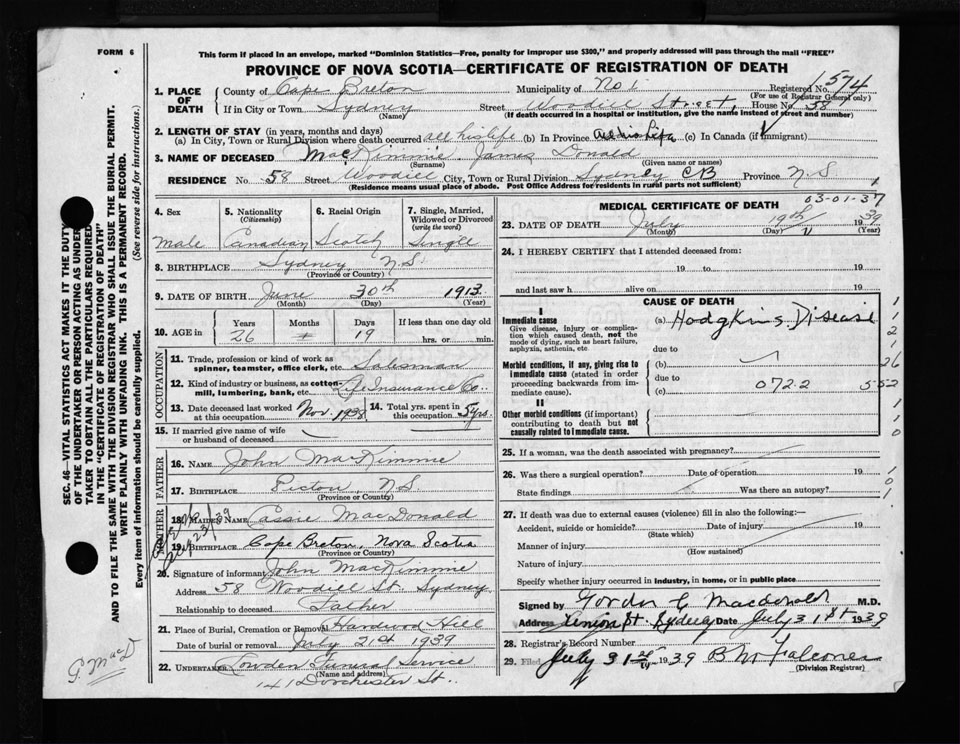 FORM 6
This form if placed in an envelope, marked "Dominion Statistics—Free, penalty for improper use $300," and properly addressed will pass through the mail "FREE"
PROVINCE OF NOVA SCOTIA—CERTIFICATE OF REGISTRATION OF DEATH
1. PLACE OF DEATH
County of Cape Breton Municipality of No 1 Registered No. 1574
(For use of Registrar General only)
If in City or Town Sydney Street Woodill Street, House No 58
(Name) (If death occurred in a hospital or institution, give the name instead of street and number)
2. LENGTH OF STAY (in years, months and days)
(a) In City, Town or Rural Division where death occurred all his life (b) In Province All his Life (c) In Canada (if immigrant)
3. NAME OF DECEASED MacKimmie James Donald
(Surname) (Given name or names)
RESIDENCE No 58 Street Woodill City, Town or Rural Division Sydney CB Province N.S
(Residence means usual place of abode. Post Office Address for residents in rural parts not sufficient)
4. Sex
Male
5. Nationality
(Citizenship)
Canadian
6. Racial Origin
Scotch
7. Single, Married, Widowed or Divorced
(write the word)
Single
8. BIRTHPLACE Sydney N.S.
(Province or Country)
9. DATE OF BIRTH June 30th 1913
(Month) (Day) (Year)
10. AGE in Years Months Days If less than one day old
26 19 hrs. or min.
OCCUPATION
11. Trade, profession or kind of work as spinner, teamster, office clerk, etc Salesman
12. Kind of industry or business, as cotton-mill, lumbering, bank, etc. Insurance Co.
13. Date deceased last worked at this occupation Nov. 1938
14. Total yrs. spent in this occupation 5 yrs.
15. If married give name of wife or husband of deceased
FATHER
16. NAME John MacKimmie
17. BIRTHPLACE Pictou, N.S
(Province or Country)
MOTHER
18. MAIDEN NAME Cassie MacDonald
19. BIRTHPLACE Cape Breton, Nova Scotia
(Province or Country)
20. Signature of informant John MacKimmie
Address 58 Woodill St. Sydney
Relationship to deceased Father
21. Place of Burial, Cremation or Removal Hardwood Hill
Date of burial or removal July 21st 1939
22. UNDERTAKER Lowden Funeral Service
(Name and address)
141 Dorchester St.
MEDICAL CERTIFICATE OF DEATH
03-01-37
23. DATE OF DEATH July 19th 1939
(Month) (Day) (Year)
24. I HEREBY CERTIFY that I attended deceased from:
19 to 19
and last saw h alive on 19
CAUSE OF DEATH
I
Immediate cause
Give disease, injury or complication which caused death, not the mode of dying, such as heart failure, asphyxia, asthenia, etc
(a) Hodgkins Disease
due to
Morbid conditions, if any, giving rise to immediate cause (stated in order proceeding backwards from immediate cause).
(b)
due to
(c) 072.2
II
Other morbid conditions (if important) contributing to death but not causally related to immediate cause.
1
1
2
1
26
552
1
1
0
25. If a woman, was the death associated with pregnancy?
26. Was there a surgical operation? Date of operation 19
State findings Was there an autopsy?
1
01
27. If death was due to external causes (violence) fill in also the following:—
Accident, suicide or homicide? Date of injury 19
(State which)
Manner of injury
(How sustained)
Nature of injury
Specify whether injury occurred in industry, in home, or in public place
Signed by Gordon C Macdonald M.D.
Address St. Sydney Date July 31st 1939
28. Registrar's Record Number
29. Filed July 31st 1939 Falconer
(Division Registrar)
SEC. 46—VITAL STATISTICS ACT MAKES IT THE DUTY
OF THE UNDERTAKER OR PERSON ACTING AS UNDERTAKER
TAKER TO OBTAIN ALL THE PARTICULARS REQUIRED
IN THE "CERTIFICATE OF REGISTRATION OF DEATH"
AND TO FILE THE SAME WITH THE DIVISION REGISTRAR WHO SHALL ISSUE THE BURIAL PERMIT.
WRITE PLAINLY WITH UNFADING INK. THIS IS A PERMANENT RECORD.
Every item of information should be carefully supplied.
(See reverse side for instructions.)
G. MacD